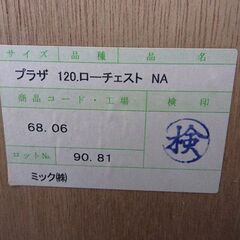 サイズ 品種 品名
プラザ 120.ローチェスト NA
商品コード・工場 検印
68.06
検
ロットNo. 90.81
ミック㈱